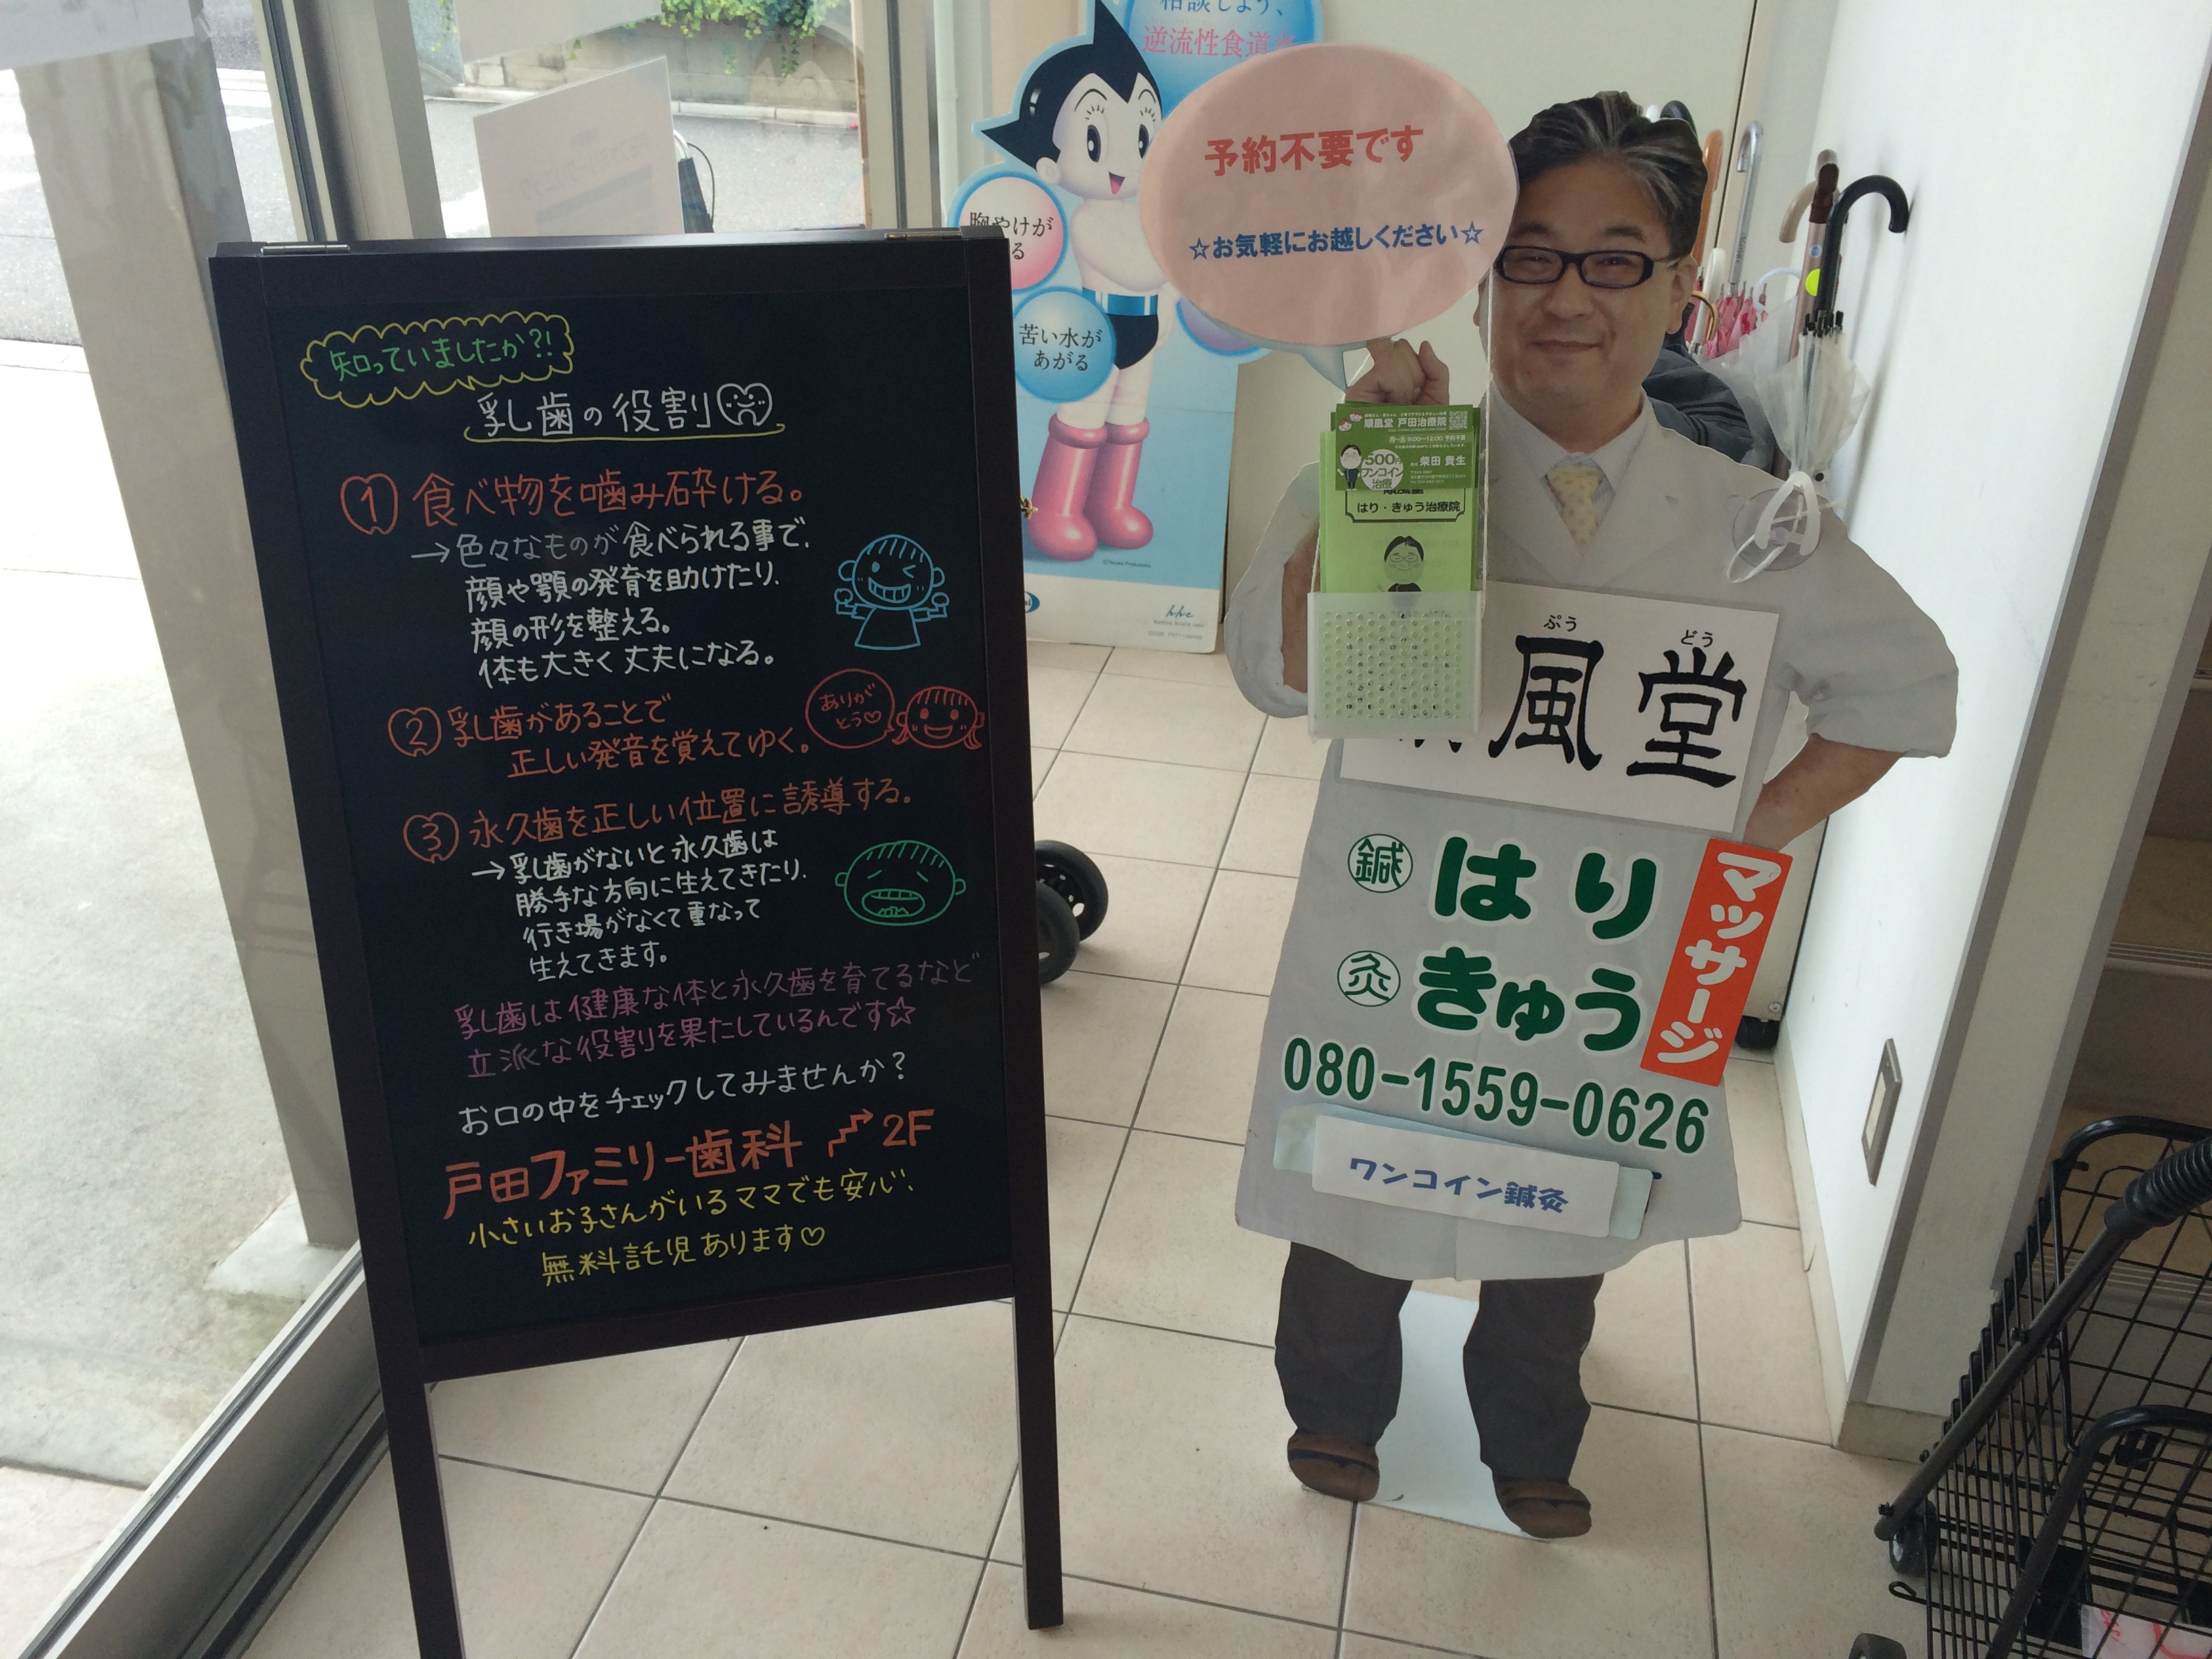 知っていましたか?!
乳歯の役割
① 食べ物を噛み砕ける。
→色々なものが食べられる事で、
顔や顎の発育を助けたり、
顔の形を整える。
体も大きく丈夫になる。
② 乳歯があることで
正しい発音を覚えてゆく。
ありが
とう♡
③ 永久歯を正しい位置に誘導する。
→乳歯がないと永久歯は
勝手な方向に生えてきたり、
行き場がなくて重なって
生えてきます。
乳歯は健康な体と永久歯を育てるなど
立派な役割を果たしているんです☆
お口の中をチェックしてみませんか?
戸田ファミリー歯科 2F
小さいお子さんがいるママでも安心、
無料託児あります♡
相談しよう、
逆流性食道
胸やけが
る
苦い水が
あがる
予約不要です
☆お気軽にお越しください☆
順風堂 戸田治療院
月~土 9:00~12:00 予約不要
500円
ワンコイン
治療
柴田 貴生
はり・きゅう治療院
ぷう どう
風堂
鍼 はり
灸 きゅう
マッサージ
080-1559-0626
ワンコイン鍼灸